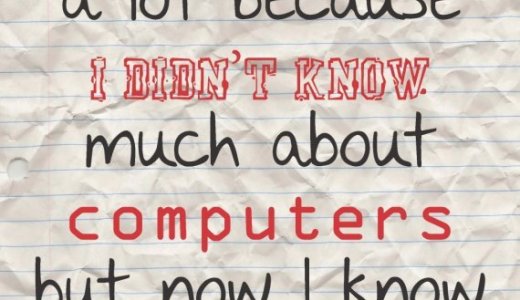 a lot because
I DIDN'T KNOW
much about
computers
but now I know